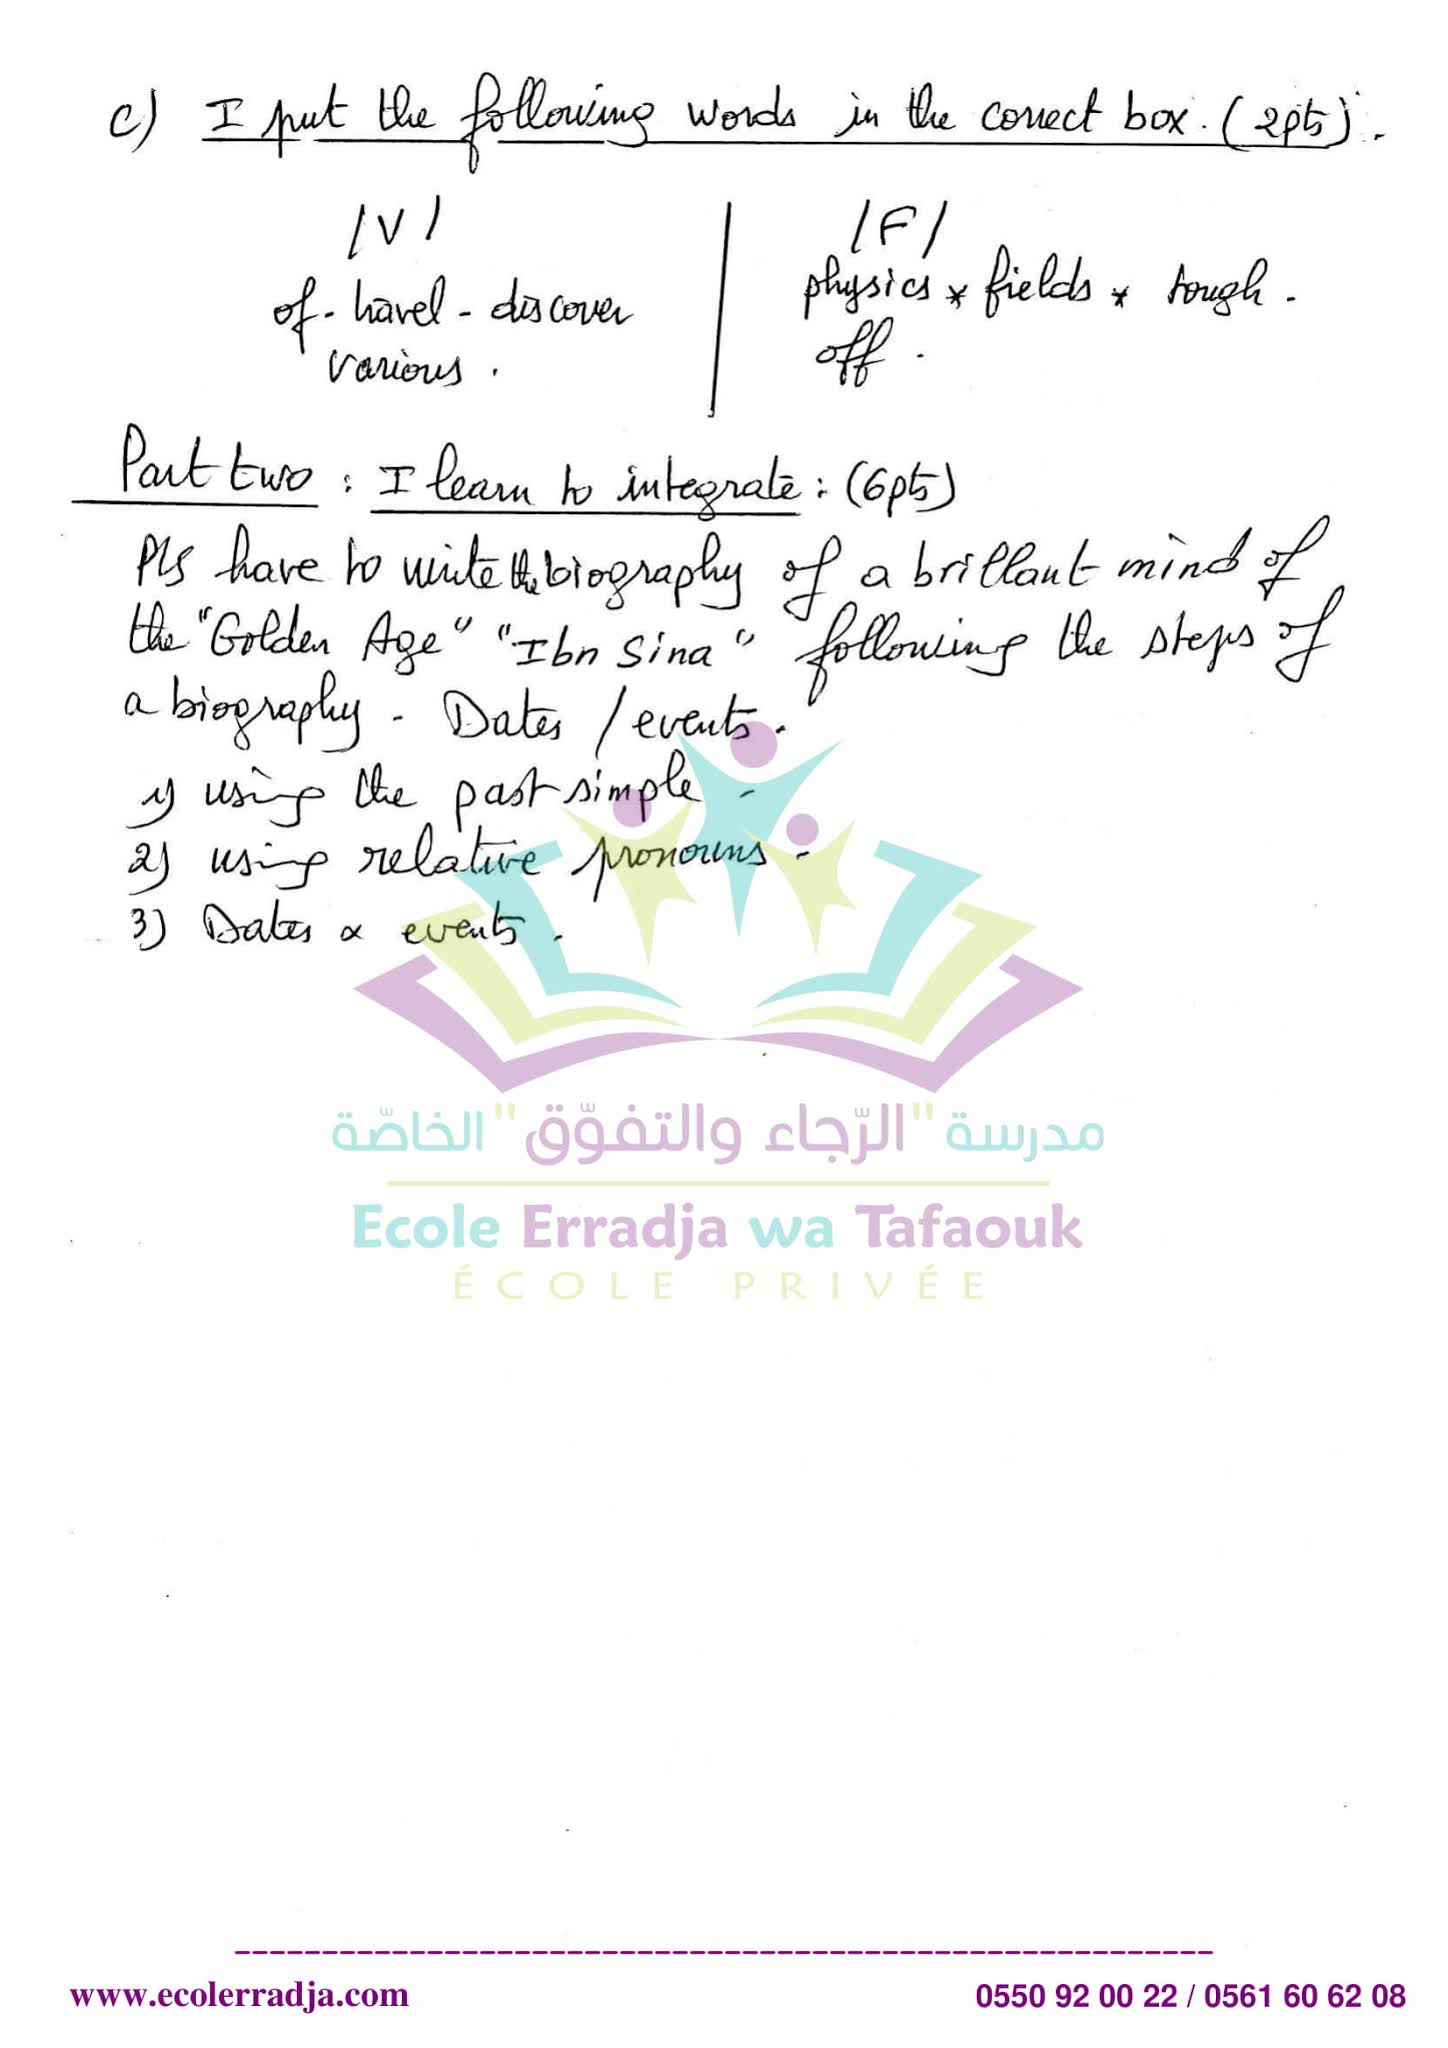 c) I put the following words in the correct box. (2pts).
/V/
/F/
of - travel - discover
various.
physics * fields * tough -
off.
Part two : I learn to integrate : (6pts)
Pls have to write the biography of a brillant mind of
the "Golden Age" "Ibn Sina" following the steps of
a biography - Dates / events.
1) using the past simple -
2) using relative pronouns -
3) Dates & events.
مدرسة "الرّجاء والتفوّق" الخاصّة
Ecole Erradja wa Tafaouk
ÉCOLE PRIVÉE
www.ecolerradja.com
0550 92 00 22 / 0561 60 62 08